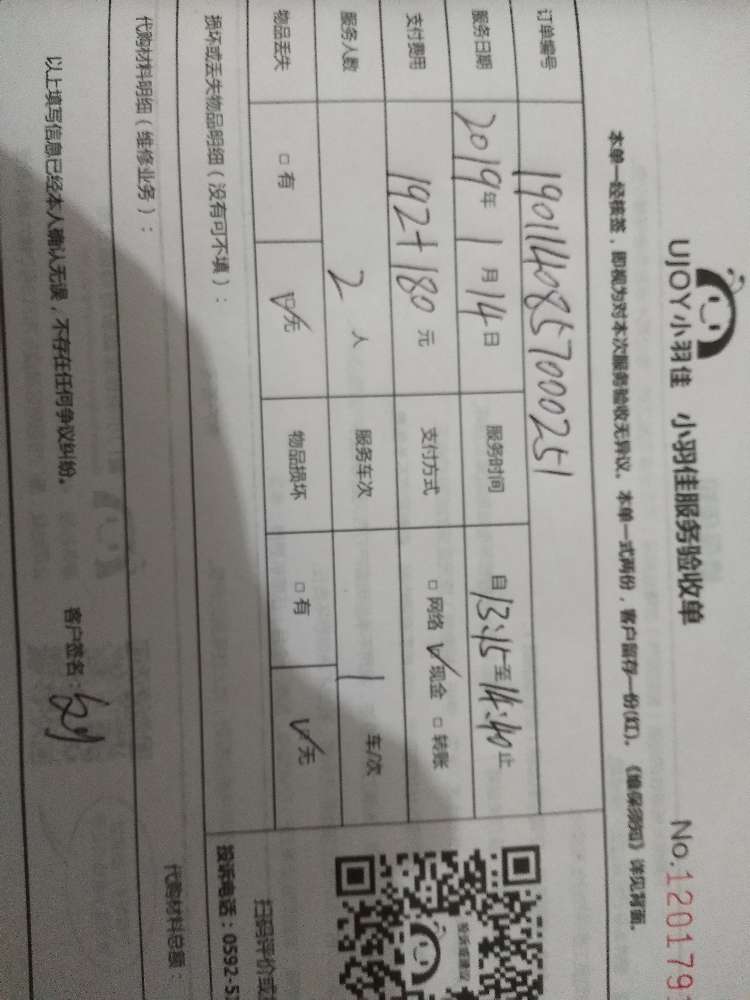 UJOY小羽佳 小羽佳服务验收单 No.120179
本单一经核签，即视为对本次服务验收无异议。本单一式两份，客户留存一份(红)。《维保须知》详见背面。
订单编号 1901140857000251
服务日期 2019年1月14日 服务时间 自13:15至14:40止
支付费用 192+180元 支付方式 □网络 ☑现金 □转账
服务人数 2人 服务车次 1车/次
物品丢失 □有 ☑无 物品损坏 □有 ☑无
投诉或建议
扫码评价或
损坏或丢失物品明细（没有可不填）： 投诉电话：0592-5
代购材料明细（维修业务）： 代购材料总额：
以上填写信息已经本人确认无误，不存在任何争议纠纷。 客户签名：